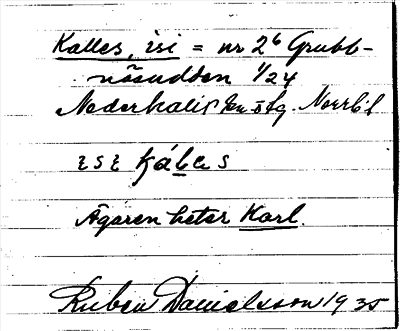 Kalles, isi = nr 2⁶ Grubb-
näsudden 1/24
Nederkalix
ɩsɩ kábɐs
Ägaren heter Karl.
Ruben Danielsson 1935